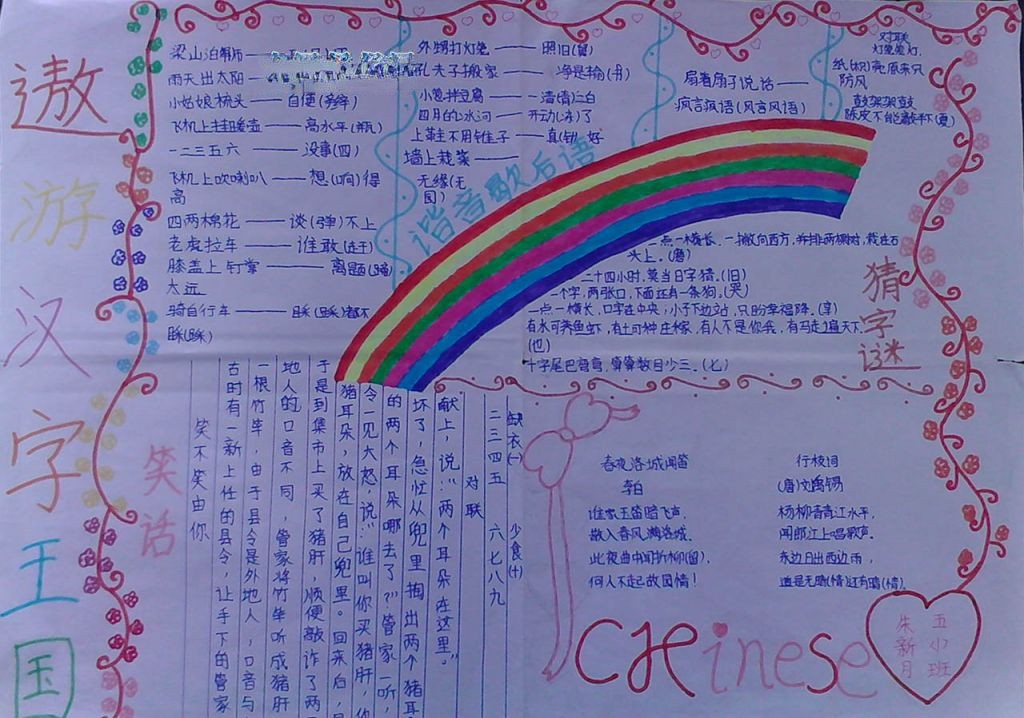 遨游汉字王国
梁山泊
雨天出太阳——
小姑娘梳头——自便(辫)
飞机上挂暖壶——高水平(瓶)
一二三五六——没事(四)
飞机上吹喇叭——想(响)得
高
四两棉花——谈(弹)不上
老虎拉车——谁敢(赶)
膝盖上钉掌——离题(蹄)
太远
骑自行车——睬(踩)都不
睬(踩)
外甥打灯笼——照旧(舅)
孔夫子搬家——净是输(书)
小葱拌豆腐——一清(青)二白
四月的冰河——开动(冻)了
上鞋不用锥子——真(针)好
墙上栽菜——
无缘(无
园)
谐音歇后语
扇着扇子说话——
疯言疯语(风言风语)
对联
灯笼笼灯,
纸(织)壳原来只
防风
鼓架架鼓
陈皮不能敲半(夏)
一点一横长,一撇向西方,并排两棵树,栽在石
头上。(磨)
二十四小时,莫当日字猜。(旧)
一个字,两张口,下面还有一条狗。(哭)
一点一横长,口字在中央,小子下边站,只盼幸福降。(享)
有水可养鱼虾,有土可种庄稼,有人不是你我,有马走遍天下。
(也)
十字尾巴弯弯,算算数目少三。(七)
猜字谜
缺衣(一) 少食(十)
二三四五 六七八九
对联
献上,说:“两个耳朵在这里。”
坏了,急忙从兜里掏出两个猪耳
的两个耳朵哪去了?”管家一听,
令一见大怒,说:“谁叫你买猪肝,你
猪耳朵,放在自己兜里。回来后,
于是到集市上买了猪肝,顺便敲诈了两
地人的口音不同,管家将竹竿听成猪肝
一根竹竿,由于县令是外地人,口音与
古时有一新上任的县令,让手下的管家
笑不笑由你
笑话
春夜洛城闻笛
李白
谁家玉笛暗飞声,
散入春风满洛城。
此夜曲中闻折柳(留),
何人不起故园情!
行枝词
(唐)刘禹锡
杨柳青青江水平,
闻郎江上唱歌声。
东边日出西边雨,
道是无晴(情)还有晴(情)。
CHinese
五小班
朱新月